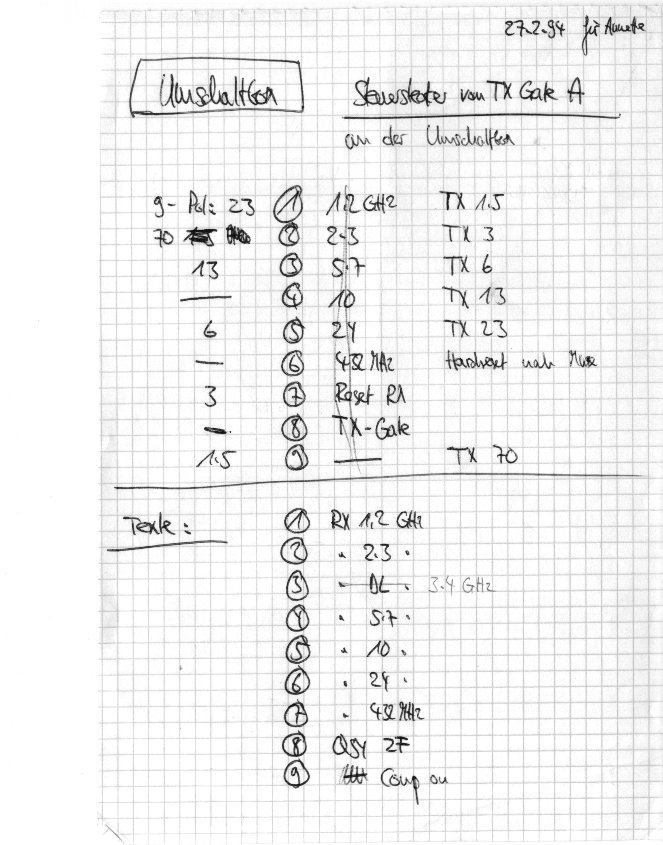 27.2.94 für Annette
Umschaltbox
Steuerstecker von TX Gate A
an der Umschaltbox
9-Pol: 23 ① 1.2 GHz TX 1.5
70 ② 2.3 TX 3
13 ③ 5.7 TX 6
— ④ 10 TX 13
6 ⑤ 24 TX 23
— ⑥ 432 MHz Hardreset nah
3 ⑦ Reset R1
— ⑧ TX-Gate
1.5 ⑨ — TX 70
Texte:
① RX 1,2 GHz
② " 2.3 "
③ " DL " 3.4 GHz
④ " 5.7 "
⑤ " 10 "
⑥ " 24 "
⑦ " 432 MHz
⑧ QSY ZF
⑨ Coup on